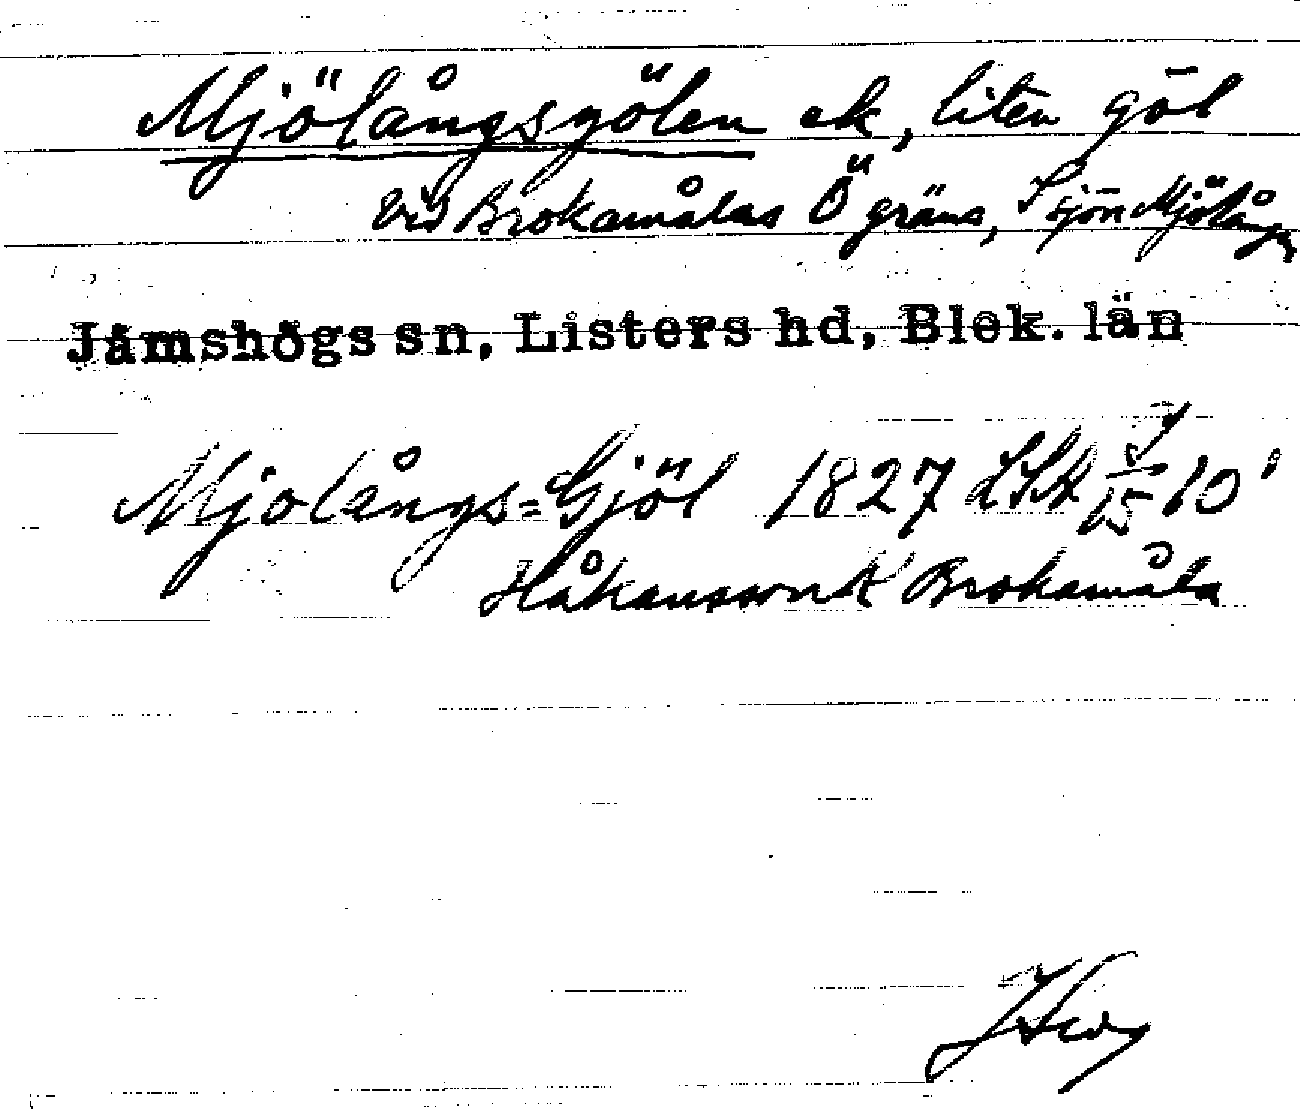 Mjölångsgölen ek, liten göl
vid Brokamålas Ö gräns, S sjön Mjölången
Jämshögs sn, Listers hd, Blek. län
Mjolångs=Gjöl 1827 LSA J/15 10¹
Håkansson K Brokamåla